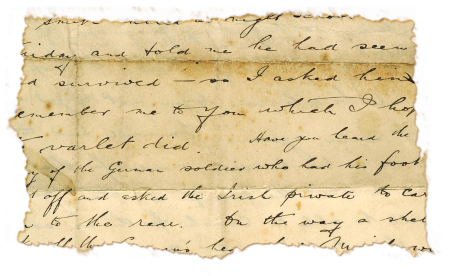 night
riday and told me he had seen
d survived — so I asked him
emember me to you which I hop
varlet did. Have you heard the
y of the German soldier who had his foot
t off and asked the Irish private to car
to the rear. On the way a shel